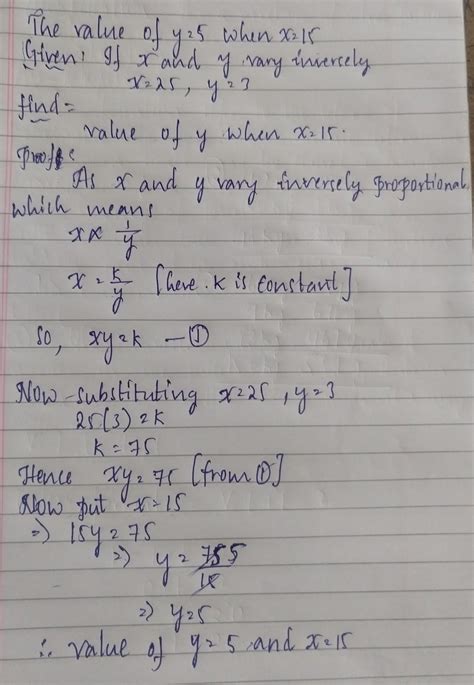 The value of y=5 when x=15
Given: If x and y vary inversely
x=25, y=3
find=
value of y when x=15.
Proof:
As x and y vary inversely proportional
which means
x ∝ 1/y
x = k/y [here. k is constant]
So, xy=k — ①
Now substituting x=25, y=3
25(3)=k
k=75
Hence xy=75 [from ①]
Now put x=15
=) 15y=75
=) y=75 5/15
=) y=5
∴ value of y=5 and x=15